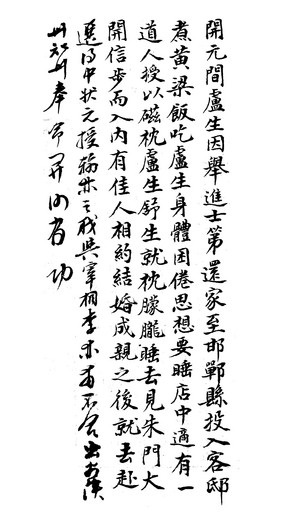 開元間盧生因舉進士第還家至邯鄲縣投入客邸
煮黃梁飯吃盧生身體困倦思想要睡店中適有一
道人授以磁枕盧生舒生就枕朦朧睡去見朱門大
開信步而入內有佳人相約結婚成親之後就去赴
選得中狀元授翰林之職與宰相李林甫不合出
奉有功